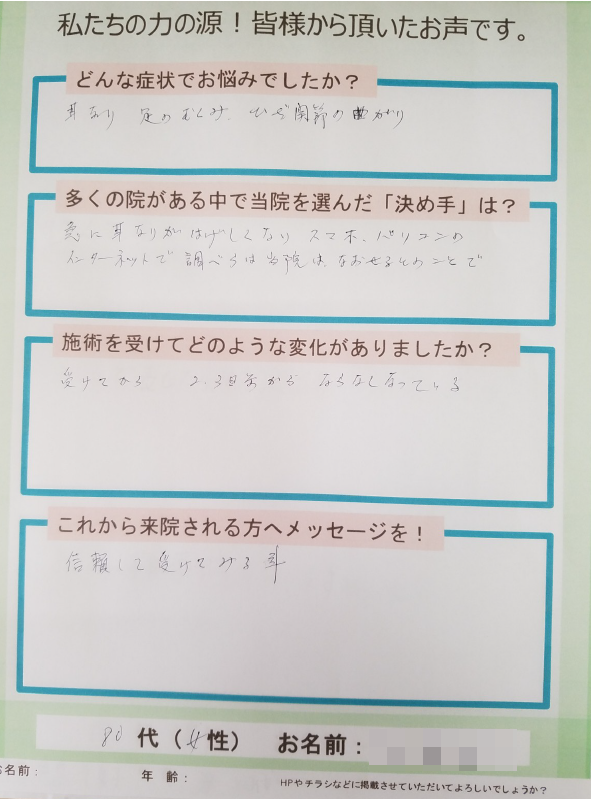 私たちの力の源！皆様から頂いたお声です。
どんな症状でお悩みでしたか？
耳なり 足のむくみ、ひざ関節の曲がり
多くの院がある中で当院を選んだ「決め手」は？
急に耳なりがはげしくなりスマホ、パソコンの
インターネットで調べらは当院は、なおせるとのことで
施術を受けてどのような変化がありましたか？
受けてから 2.3日前から ならなくなっている
これから来院される方へメッセージを！
信頼して受けてみる事
80代（女性） お名前：
お名前： 年齢： HPやチラシなどに掲載させていただいてよろしいでしょうか？